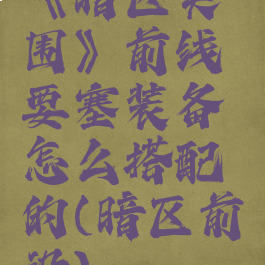 《暗区突
围》前线
要塞装备
怎么搭配
的(暗区前